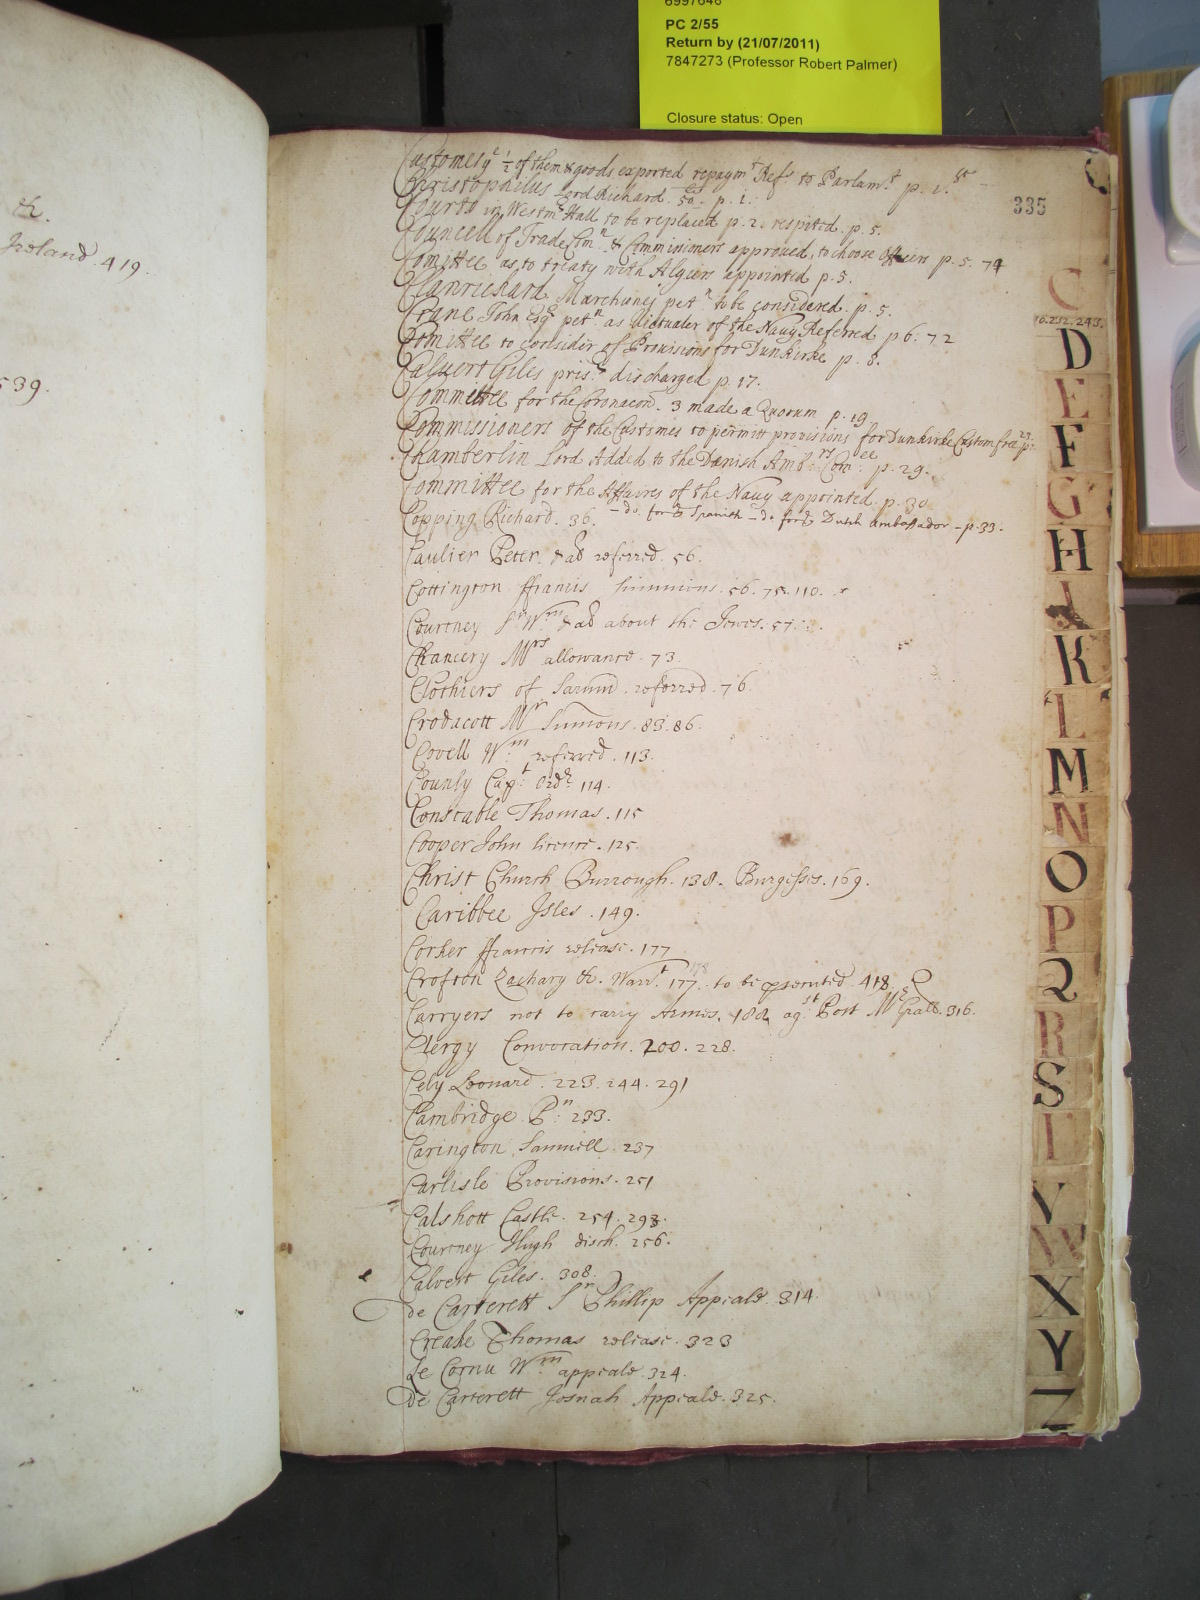 6997646
PC 2/55
Return by (21/07/2011)
7847273 (Professor Robert Palmer)
Closure status: Open
&c.
Ireland 419.
539.
335
Customes ye 1/2 of them & goods exported repaymt Refd to Parlamt p. 1.
Christophilus Lord Richard. 50. p. 1.
Courts in Westmr Hall to be replaced p. 2. respited. p. 5.
Councell of Trade Comn & Commissioners approved, to choose Officers p. 5. 74
Comittee as to treaty with Algiers appointed p. 5.
Clanrickard Marchones petn to be considered. p. 5.
Crane John Esqr petn as victualer of the Navy Referred p 6. 72
Comittee to consider of Provisions for Dunkirke p. 8.
Calvert Giles prisr discharged p. 17.
Committee for the Coronacon. 3 made a Quorum p. 19
Commissioners of the Customes to permitt provisions for Dunkirke Custom free p. 23.
Chamberlin Lord Added to the Danish Ambrs Comee p. 29.
Committee for the Affaires of the Navy appointed. p. 30
Copping Richard. 36. – do. for ye Spanish – do for ye Dutch Ambassador – p. 33.
Caulier Peter. &ca referred. 56.
Cottington ffrancis Summons. 56. 75. 110.
Courtney Sr Wm &ca about the Jewes. 57.
Chancery Mrs allowance. 73.
Clothiers of Sarum. referred. 76.
Crodacott Mr Sumons. 83. 86.
Covell Wm referred. 113.
County Capt Ordr 114.
Constable Thomas. 115
Cooper John licence. 125.
Christ Church Burrough. 138. Burgesses. 169.
Caribbee Isles. 149.
Corker ffrancis release. 177
Crofton Zachary &c. Warrt 177. 178 to be psecuted 418.
Carryers not to carry Armes. 188 agst Post Mr Genll. 316.
Clergy Convocation. 200. 228.
Cely Leonard. 223. 244. 291
Cambridge Pn 233.
Carington Samuell. 237
Carlisle Provisions. 251
Calshott Castle. 254. 293.
Courtney Hugh disch. 256.
Calvert Giles. 308.
de Carterett Sr Phillip Appeale. 314.
Creake Thomas release. 323
Le Cornu Wm appeale. 324.
De Carterett Josuah Appeale. 325.
C
16. 232. 243.
D
E
F
G
H
I
K
L
M
N
O
P
Q
R
S
T
V
W
X
Y
Z